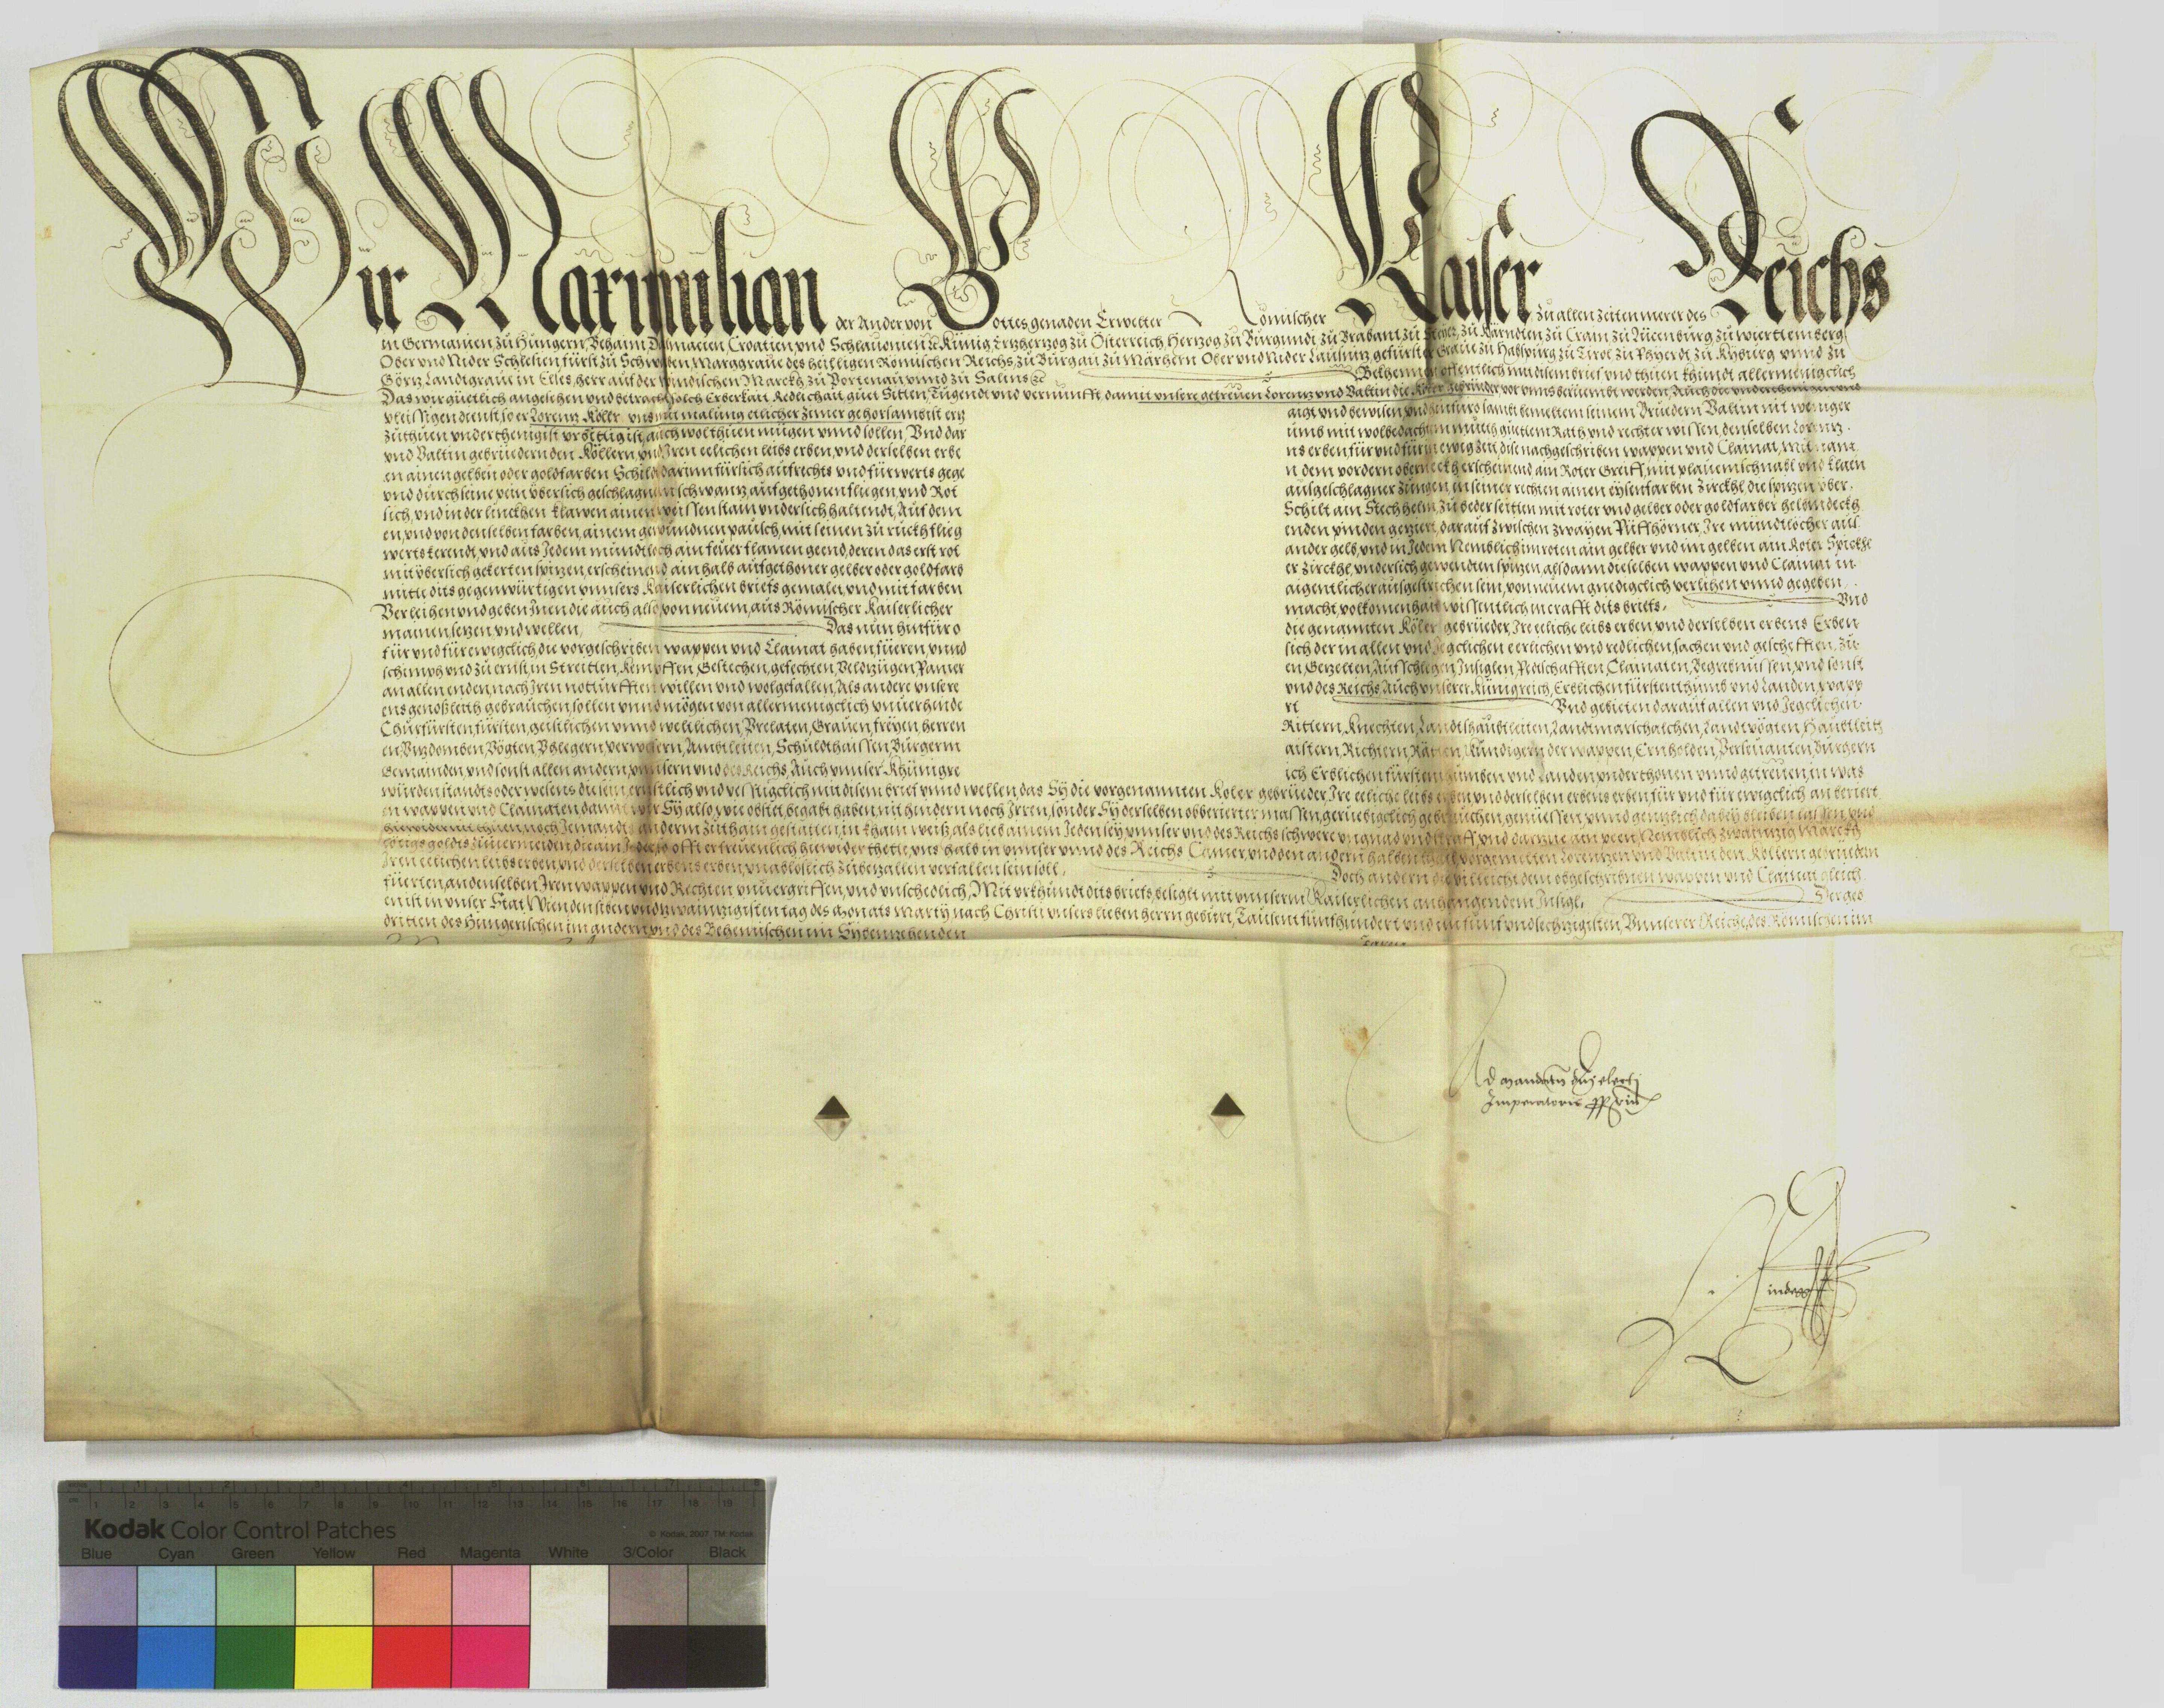 Wir Maximilian der Ander von Gottes genaden Erwelter Römischer Kaiser zu allen zeiten merer des Reichs
in Germanien zu Hungern, Behaim, Dalmacien, Croatien, und Schlauonien ec Künig, Ertzherzog zu Österreich, Herzog zu Burgundi, zu Brabant zu Steyr, zu Kärndten zu Crain zu Lücenburg zu Wiertemberg
Ober und Nider Schlesien fürst zu Schwaben Marggraue des heilligen Römischen Reichs, zu Burgau zu Märhern Ober und Nider Lausnitz, gefürster Graue zu Habspurg zu Tirol zu Phyerdt zu Kyburg unnd zu
Görtz Landtgraue in Elses, herr auf der Windischen Marckh zu Portenau unnd zu Salins ec Bekhennen offentlich mit disem brief und thuen khundt allermenigclich
Das wir güetlich angesehen und betracht solch Erberkait Redlichait guet Sitten, Tugendt und vernunfft damit unsere getreuen Lorentz und Valtin die Köler gebrüeder vor unns berüembt werden, Auch die
vleissigen dienst, so er Lorentz Köler, uns mit malung etlicher zimer gehorsamist erzaigt und bewisen, und hinfüro sambt bemeltem seinem Brüedern Valtin nit weniger
zuthuen underthenigist urbüttig ist, auch wol thuen mügen unnd sollen, Und darumb mit wolbedachtem mueth guettem Rath und rechter wissen, denselben Lorentz
und Valtin gebrüedern den Köllern, und Iren eelichen leibs erben, und derselben erbens erben für und für in ewig zeit dise nachgeschriben wappen und Clainat, mit name
en ainen gelben oder goldfarben Schildt darinn fürlich aufrechts und fürwerts gegen dem vordern obern eckh erscheinend ain Roter Greiff, mit plauem schnabl und klaen
und durch seine pein übersich geschlagnem schwantz, aufgethonen fliegen, und Rot ausgeschlagner zungen, in seiner rechten ainen eysenfarben Zirckhl, die spitzen über
sich, und in der linckhen klawen ainen weissen stain undersich haltendt, Auf dem Schilt ain Stechhelm, zu beder seitten mit roter und gelber oder goldfarber helmdeckh
en, und von denselben farben, ainem gewundnen pausch, mit seinen zu ruckh fliegenden pinden getziert, darauf zwischen zwayen Püffhörner, Ire mundtlöcher aus
werts kerendt, und aus Jedem mundtloch ain feuerflamen geend, deren das erst rot ander gelb, und in Jedem Nemblich im roten ain gelber und im gelben ain Roter Spickhl
mit übersich gekerten spitzen, erscheinend ain halb aufgethoner gelber oder goldfarber Zirckhl, undersich gewendten spitzen, alsdann dieselben wappen und Clainat in
mitte dits gegenwürtigen unnsers Kaiserlichen briefs gemalet, und mit farben aigentlicher ausgestrichen sein, von neuem gnedigclich verlihen unnd gegeben
Verleihen und geben Inen die auch also von neuem, aus Römischer Kaiserlicher macht, volkomenhait wissentlich in crafft dits briefs, Und
mainen, setzen und wellen, Das nun hinfüro die genannten Köler gebrüeder, Ire eeliche leibs erben, und derselben erbens Erben
für und für ewigclich, die vorgeschriben wappen und Clainat haben, füeren, unnd sich der in allen und Jegclichen eerlichen und redlichen, sachen und gescheffien, zu
schimph und zu ernst, in Streitten, Kempffen, Gestechen, gefechten, Veldzügen, Panier en, Getzelten, Aufschlegen, Insiglen, Pedtschafften, Clainaten, Begrebnussen, und sonst
an allen enden, nach Iren notturfften willen und wolgefallen, Als andere unsere und des Reichs, Auch unserer Künigreich, Erblichen fürstenthumb und Landen, wapp
ens genoßleith gebrauchen, sollen unnd mögen von allermenigclich unuerhindert Und gebieten darauf allen und Jegclichen
Churfürsten, fürsten, geistlichen unnd weltlichen, Prelaten, Grauen, freyen, herren Rittern, Knechten, Landtshaubtleiten, Landtmarschalchen, Landtvögten, Haubtleit
en, Vitzdomben, Vögten, Phlegern, verwesern, Ambtleiten, Schuldthaissen, Burgerm aistern, Richtern, Räten, Kündigern der wappen, Ernholden, Perseuanten, Burgern
Gemainden, und sonst allen andern, unnsern und des Reichs, Auch unnser Khünigre ich Erblichen fürstenthumben und Landen, underthonen unnd getreuen, in was
würden standts oder wesens die sein, ernstlich und vestigclich mit disem brief unnd wellen, das Sy die vorgenannten Köler gebrüeder, Ire eeliche leibs erben, und derselben erbens erben, für und für ewigclich an beriert
en wappen und Clainaten damit wir Sy also, wie obstet, begabt haben, nit hindern noch Irren, sonder Sy derselben obberierter massen, geruebigclich gebrauchen, geniessen, unnd gentzlich dabey bleiben lassen, und
hiewider nit thuen, noch Jemandt anderm zuthain gestatten, in khain weiß, als lieb ainem Jeden sey unnser und des Reichs schwere ungnad und straff, und dartzue ain peen, Nemblich zwaintzig Marckh
lötigs goldts zuuermeiden, die ain Jeder, so offt er freuenlich hiewider thette, uns halb in unnser unnd des Reichs Camer, und den andern halben thail, vorgemelten Lorentzen und Valtin den Köllern gebrüedern
Iren eelichen leibs erben, und derselben erbens erben, unablöslich zubetzallen verfallen sein soll, Doch andern die villeicht dem obgeschribnen wappen und Clainat gleich
füerten, an denselben Iren wappen und Rechten unuergriffen, und unschedlich, Mit urkhundt dits briefs, besiglt mit unnserm Kaiserlichen anhangendem Insigl, Der geb
en ist in unser Stat Wien den siben und zwaintzigisten tag des Monats Marty nach Christi unsers lieben herrn geburt, Tausent fünfhundert und im fünf und sechzigisten, Unnserer Reiche, des Römischen im
dritten des Hungerischen im andern und des Behemischen im Sybentzehenden
Ad mandatum dnj electj
Imperatoris pprium
Lindegg
Kodak Color Control Patches
© Kodak, 2007 TM: Kodak
Blue Cyan Green Yellow Red Magenta White 3/Color Black
1 2 3 4 5 6 7 8 9 10 11 12 13 14 15 16 17 18 19